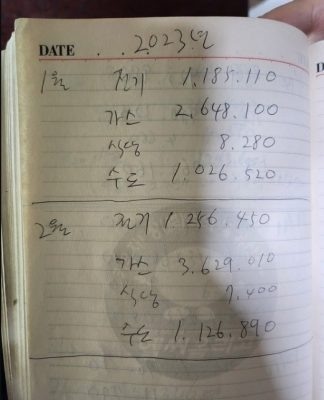 DATE . . 2023년
1월 전기 1.185.110
가스 2.648.100
식당 8.280
수도 1.026.520
2월 전기 1.256.450
가스 3.629.010
식당 7.400
수도 1.126.890